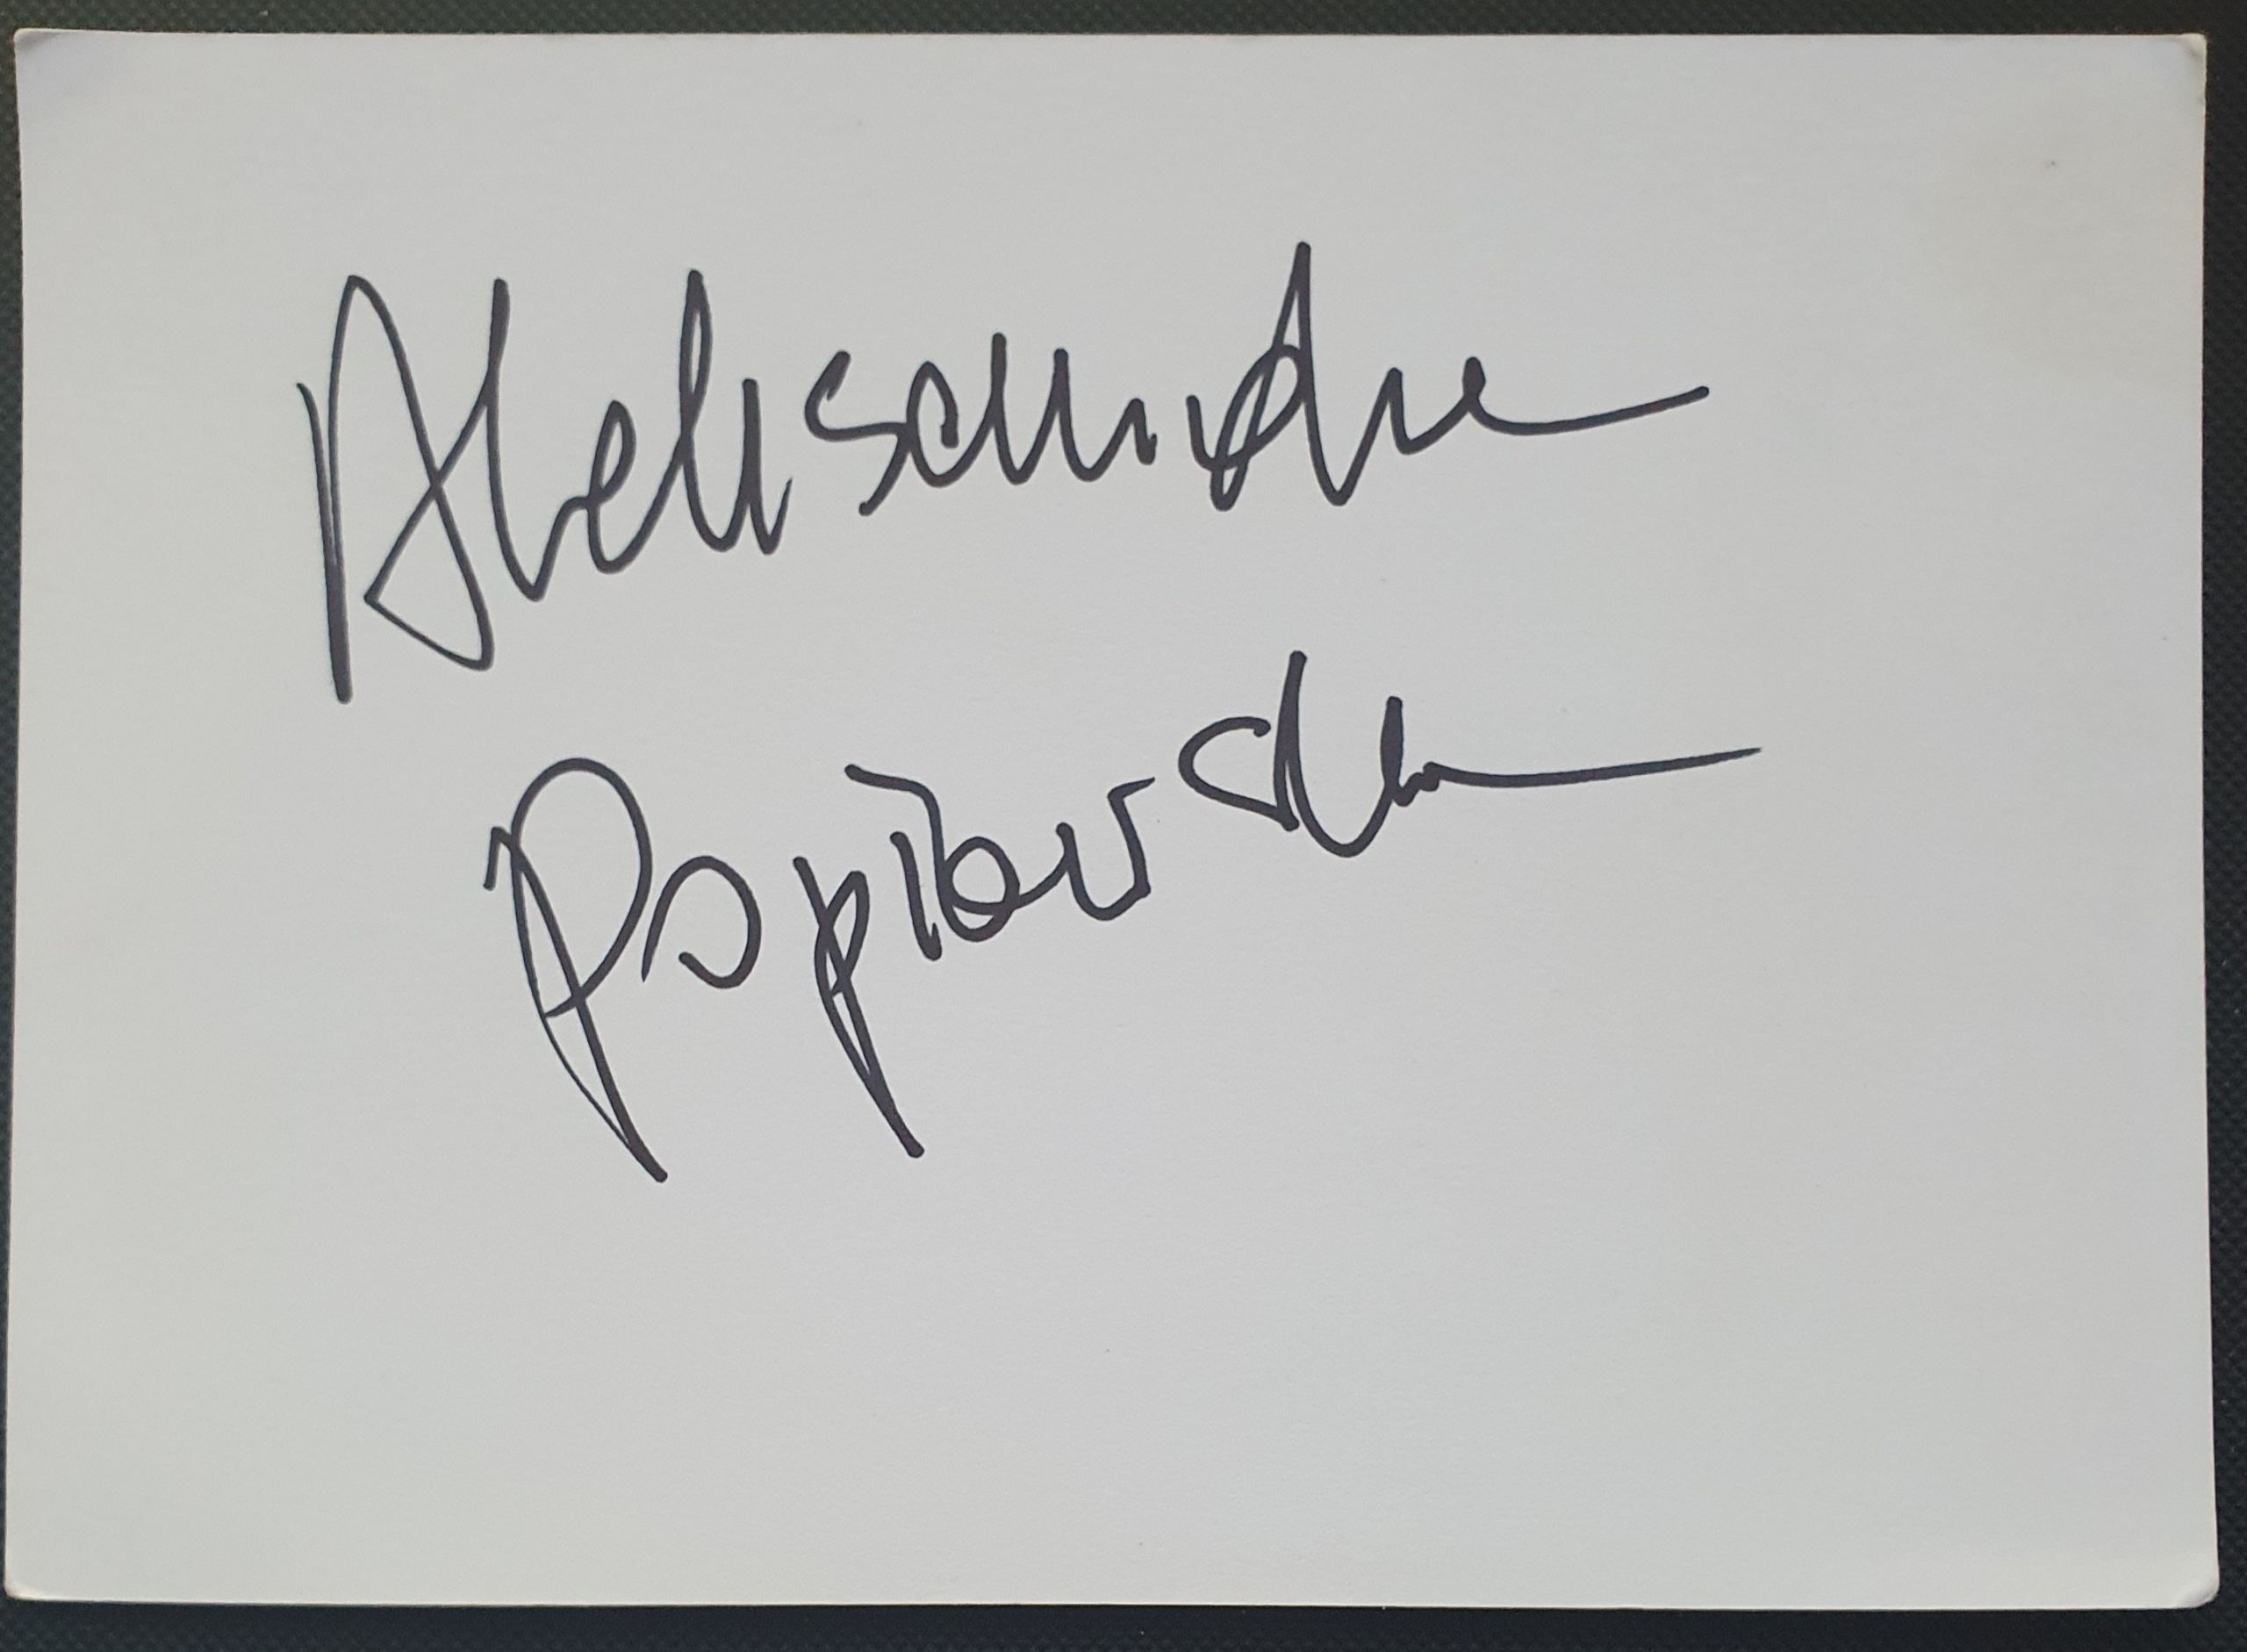 Aleksandra
Popławska